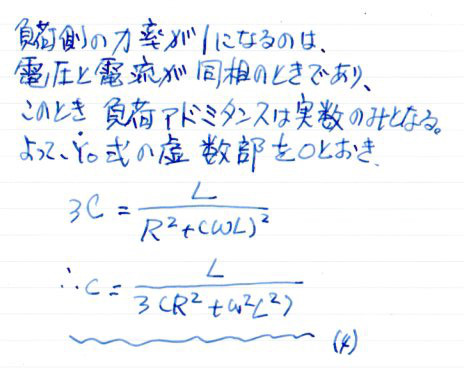 負荷側の力率が1になるのは、
電圧と電流が同相のときであり、
このとき負荷アドミタンスは実数のみとなる。
よって、Ẏ₀式の虚数部を0とおき
3C = L / (R² + (ωL)²)
∴ C = L / (3(R² + ω²L²))
(4)